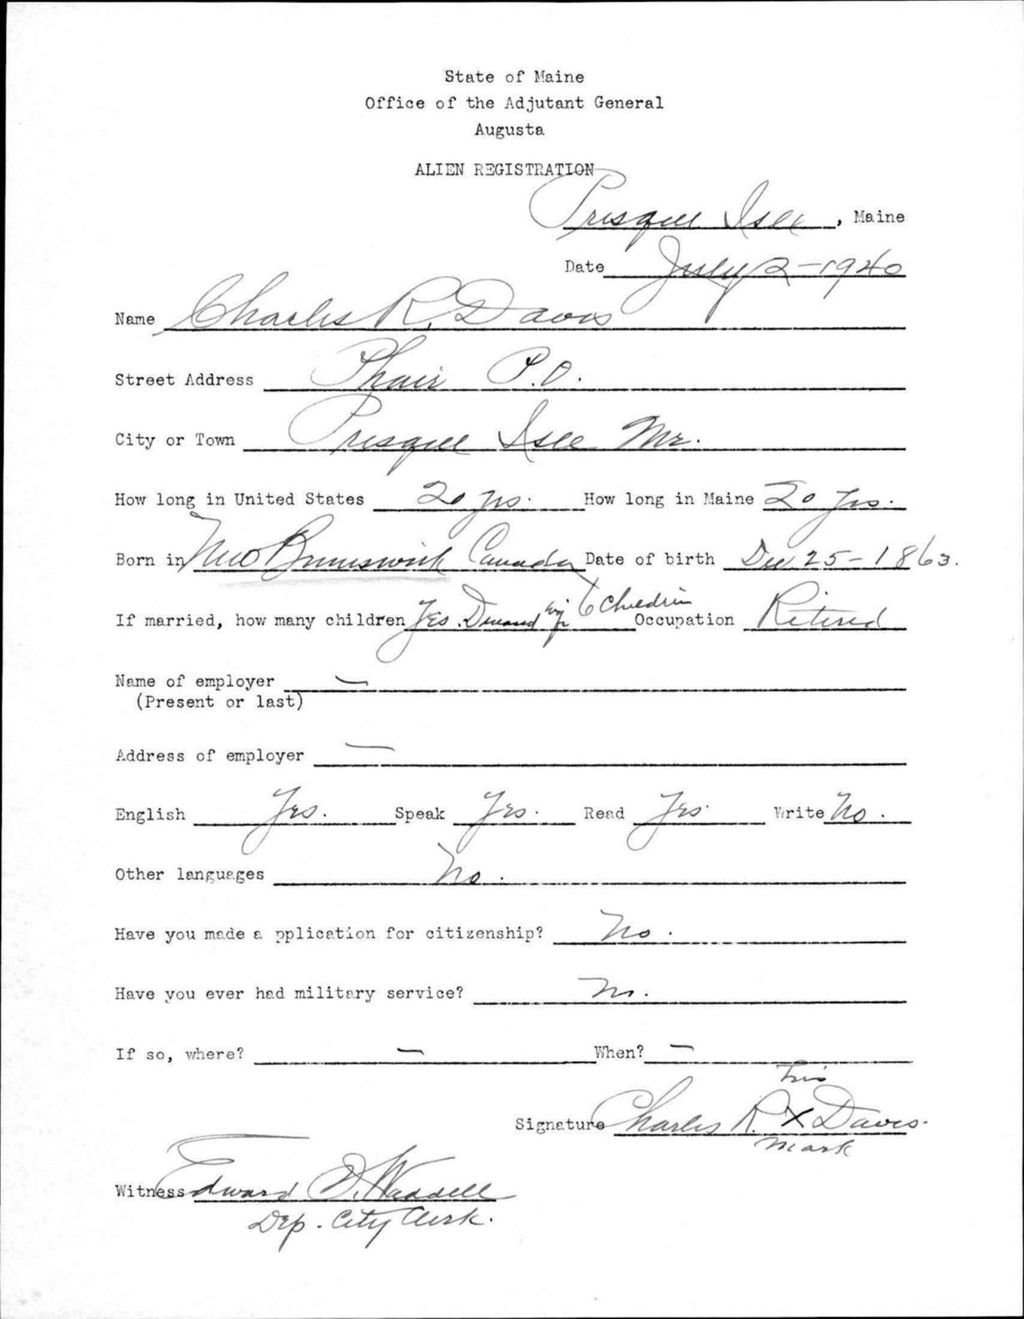 State of Maine
Office of the Adjutant General
Augusta
ALIEN REGISTRATION
Presque Isle, Maine
Date July 2-1940
Name Charles R. Davis
Street Address Phair P.O.
City or Town Presque Isle Me.
How long in United States 20 yrs. How long in Maine 20 yrs.
Born in New Brunswick Canada Date of birth Dec 25-1863.
If married, how many children Yes. 6 Children Occupation Retired
Name of employer —
(Present or last)
Address of employer —
English Yes. Speak Yes. Read Yes. Write No.
Other languages No.
Have you made a pplication for citizenship? No.
Have you ever had military service? No.
If so, where? — When? —
his
Signature Charles R. X Davis.
mark
Witness Edward Waddell
Dep. City Clerk.